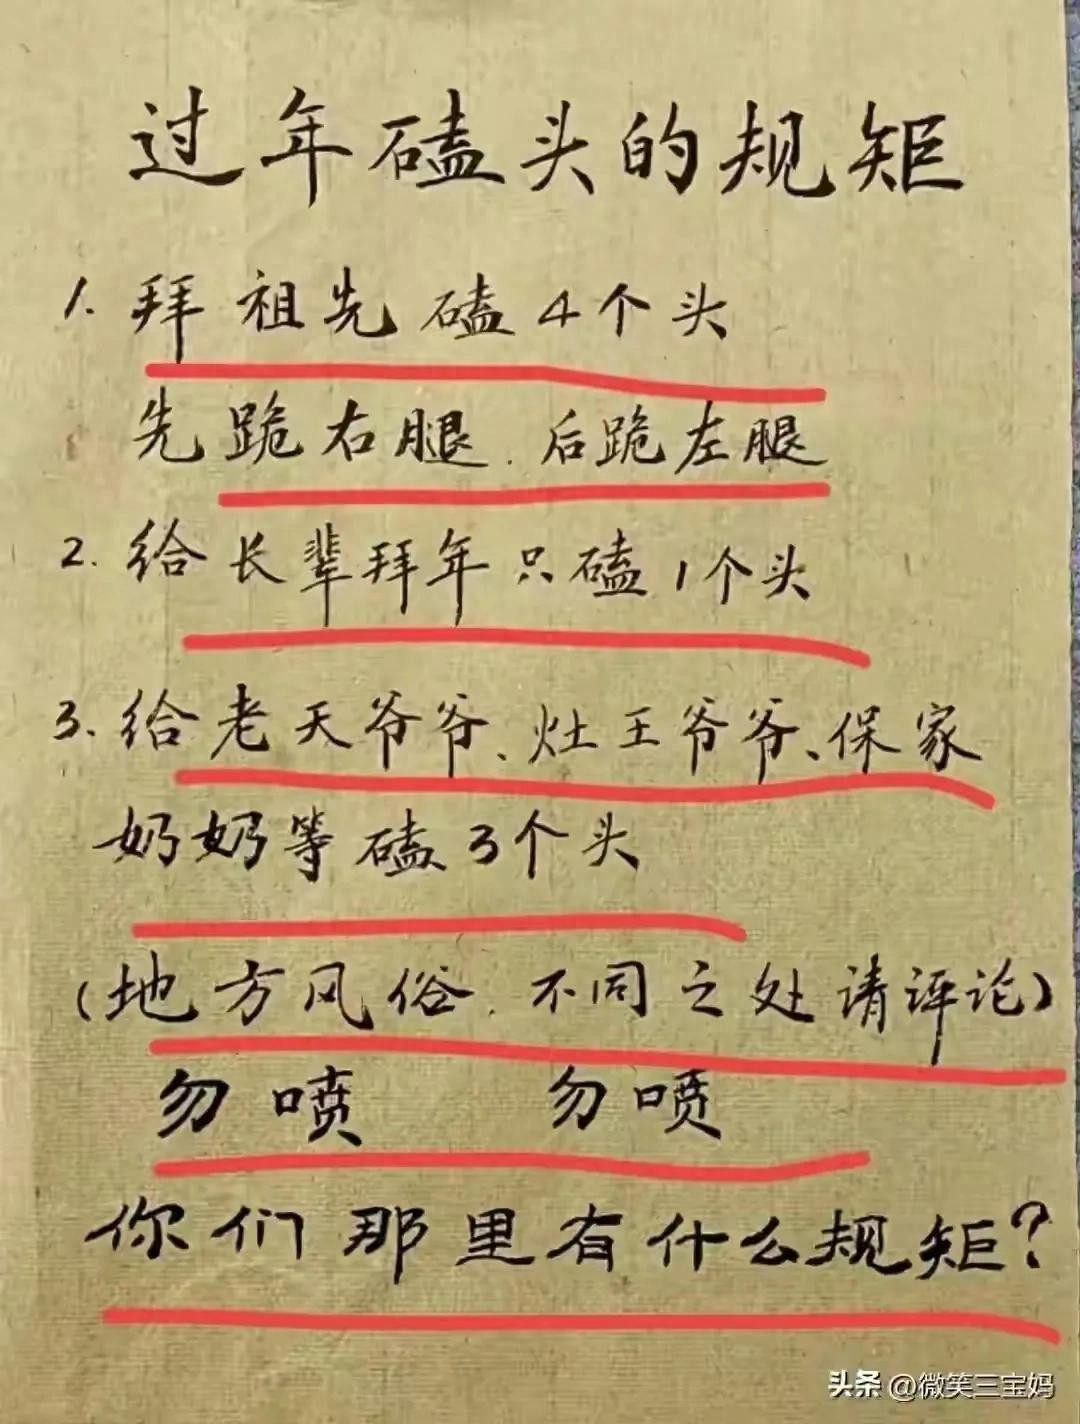 过年磕头的规矩
1. 拜祖先磕4个头
先跪右腿.后跪左腿
2. 给长辈拜年只磕1个头
3. 给老天爷爷、灶王爷爷、保家
奶奶等磕3个头
(地方风俗.不同之处请评论)
勿喷 勿喷
你们那里有什么规矩?
头条 @微笑三宝妈